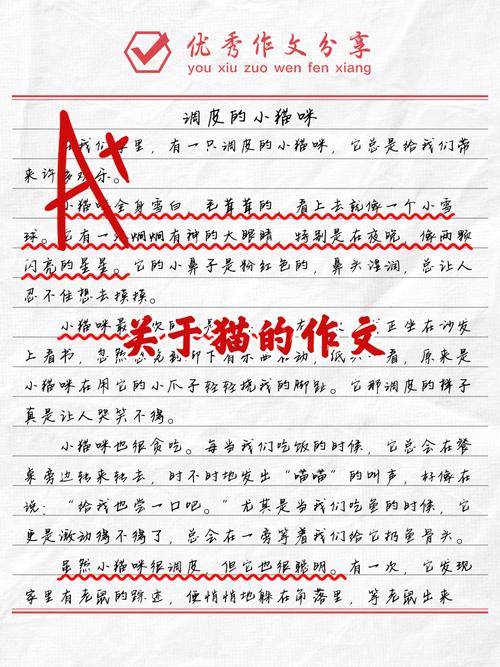 优秀作文分享
you xiu zuo wen fen xiang
A+
调皮的小猫咪
我们家里，有一只调皮的小猫咪，它总是给我们带
来许多欢乐。
小猫咪全身雪白，毛茸茸的，看上去就像一个小雪
球。它有一双炯炯有神的大眼睛，特别是在夜晚，像两颗
闪亮的星星。它的小鼻子是粉红色的，鼻头湿润，总让人
忍不住想去摸摸。
小猫咪最 是 正坐在沙发
关于猫的作文
上看书，忽然感觉到脚下有东西在动，低 看，原来是
小猫咪在用它的小爪子轻轻挠我的脚趾。它那调皮的样子
真是让人哭笑不得。
小猫咪也很贪吃。每当我们吃饭的时候，它总会在餐
桌旁边转来转去，时不时地发出“喵喵”的叫声，好像在
说：“给我也尝一口吧。”尤其是当我们吃鱼的时候，它
更是激动得不得了，总会在一旁等着我们给它扔鱼骨头。
虽然小猫咪很调皮，但它也很聪明。有一次，它发现
家里有老鼠的踪迹，便悄悄地躲在角落里，等老鼠出来